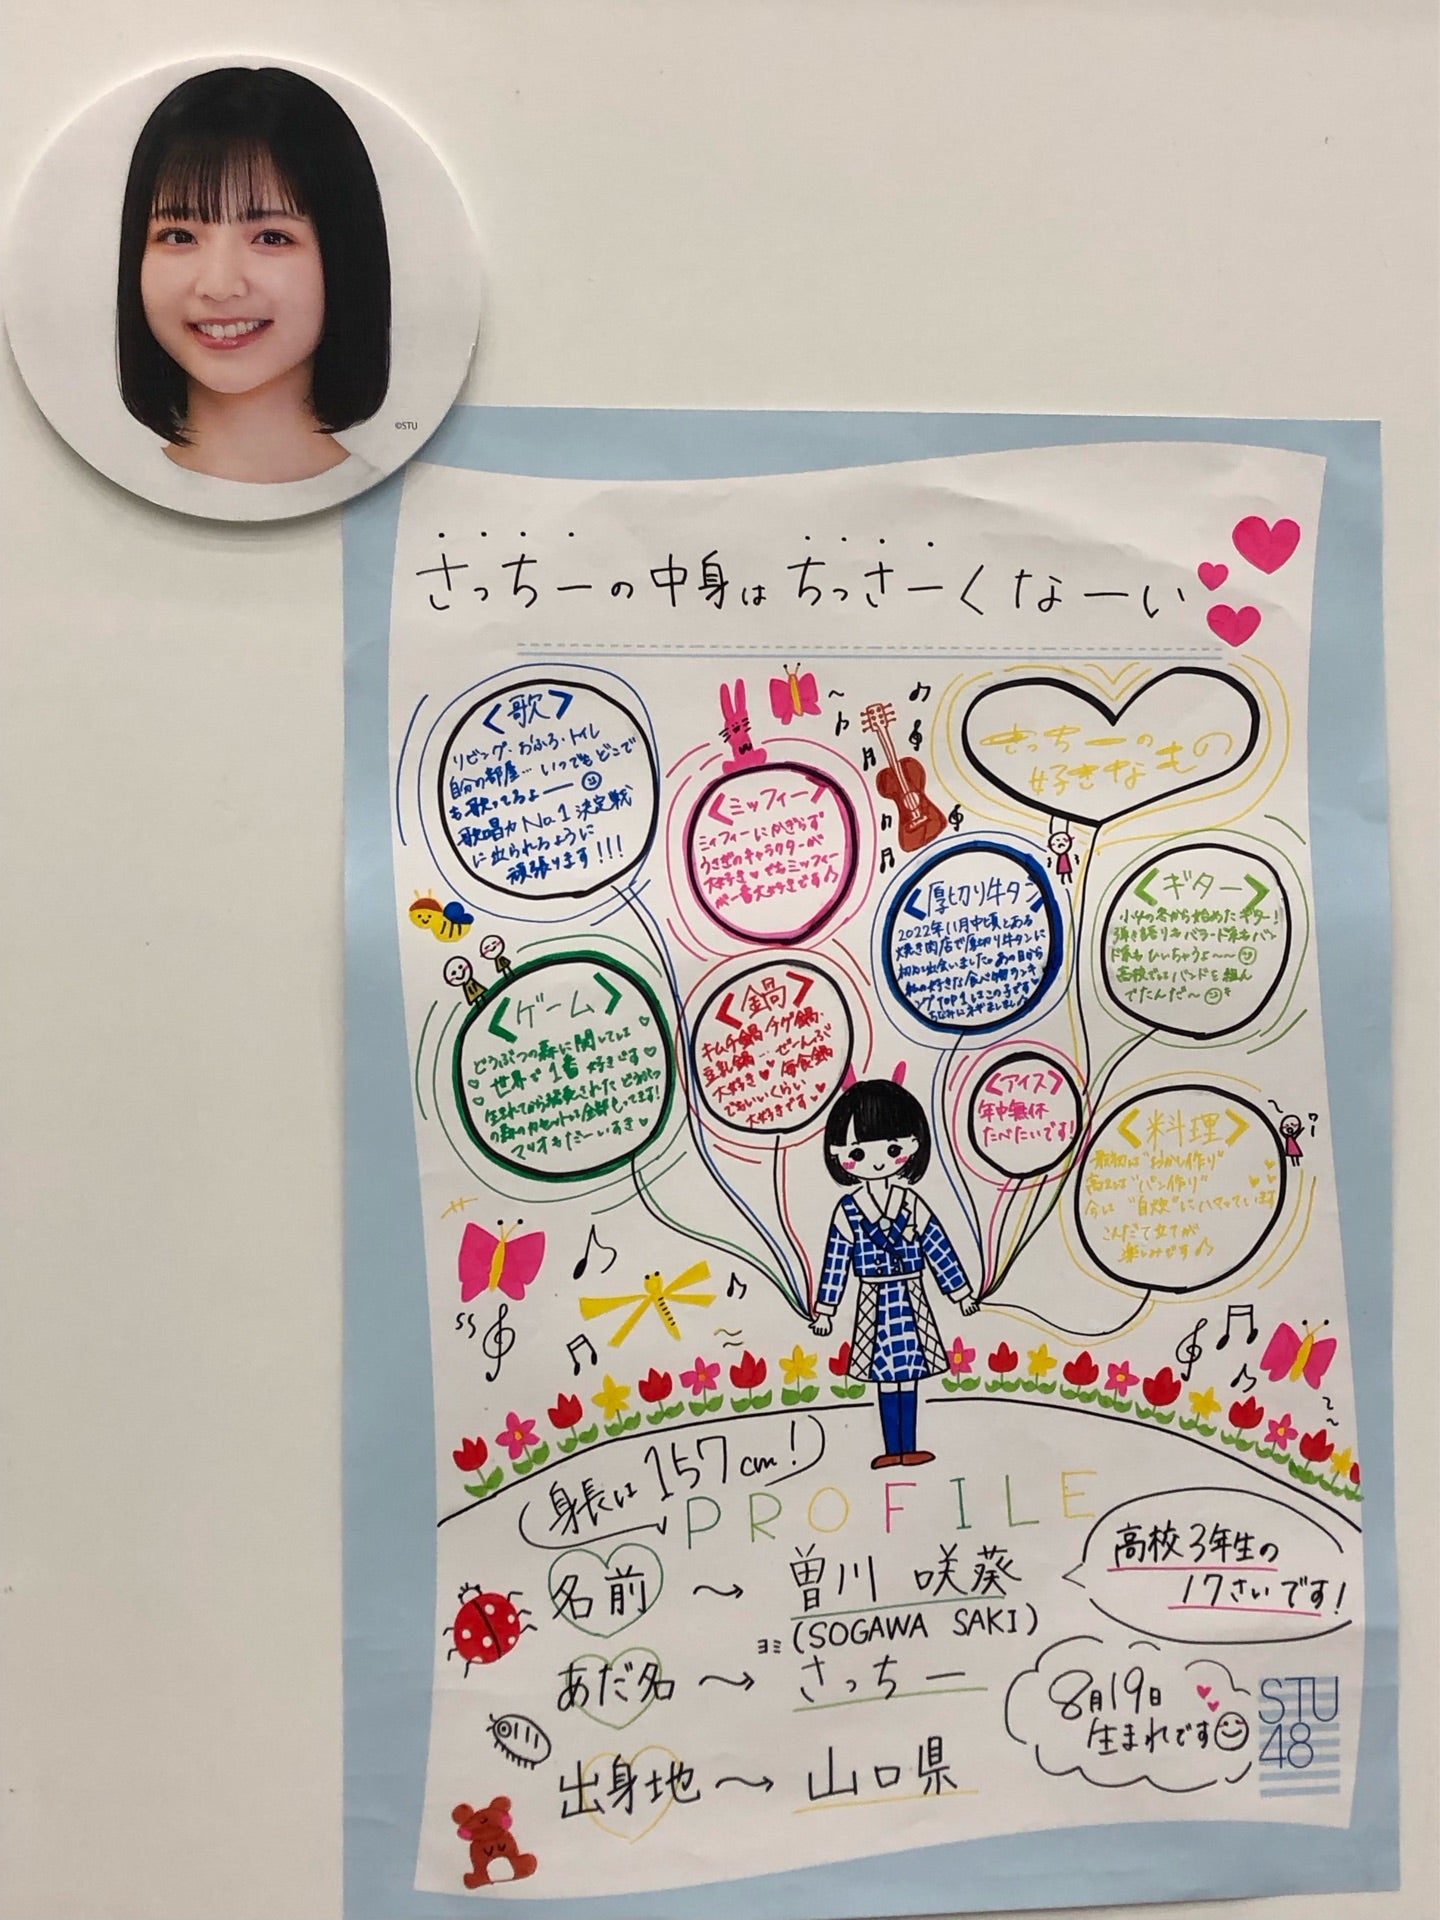 ©STU
さっちーの中身はちっさーくなーい
さっちーの
好きなもの
<歌>
リビング・おふろ・トイレ
自分の部屋…いつでもどこで
も歌ってるよー
歌唱力No.1決定戦
に出られるように
頑張ります!!!
<ミッフィー>
ミッフィーにかぎらず
うさぎのキャラクターが
大好き♥でもミッフィー
が一番大好きです♪
<厚切り牛タン>
2022年11月中頃とある
焼き肉店で厚切り牛タンに
初めて出会いました。あの日から
私の好きな食べ物ランキ
ングTOP1はこの子です♥
ちなみにネギましまし♪
<ギター>
小4の冬から始めたギター!
弾き語りもバラード系もバン
ド系もひいちゃうよ〜〜
高校ではバンドを組ん
でたんだ〜
<ゲーム>
どうぶつの森に関しては
世界で1番好きです♡
生まれてから発売されたどうぶつ
の森のカセットは全部もってます!
マリオもだーいすき♥
<鍋>
キムチ鍋、チゲ鍋、
豆乳鍋…ぜーんぶ
大好き♥毎食鍋
でもいいくらい
大好きです♥
<アイス>
年中無休
たべたいです!
<料理>
最初は"おかし作り"
高2は"パン作り"
今は"自炊"にハマっています
こんだて立てが
楽しみです♪
身長は157cm!
PROFILE
名前 → 曽川 咲葵
(SOGAWA SAKI)
高校3年生の
17さいです!
あだ名 → さっちー
8月19日
生まれです
出身地 → 山口県
STU
48